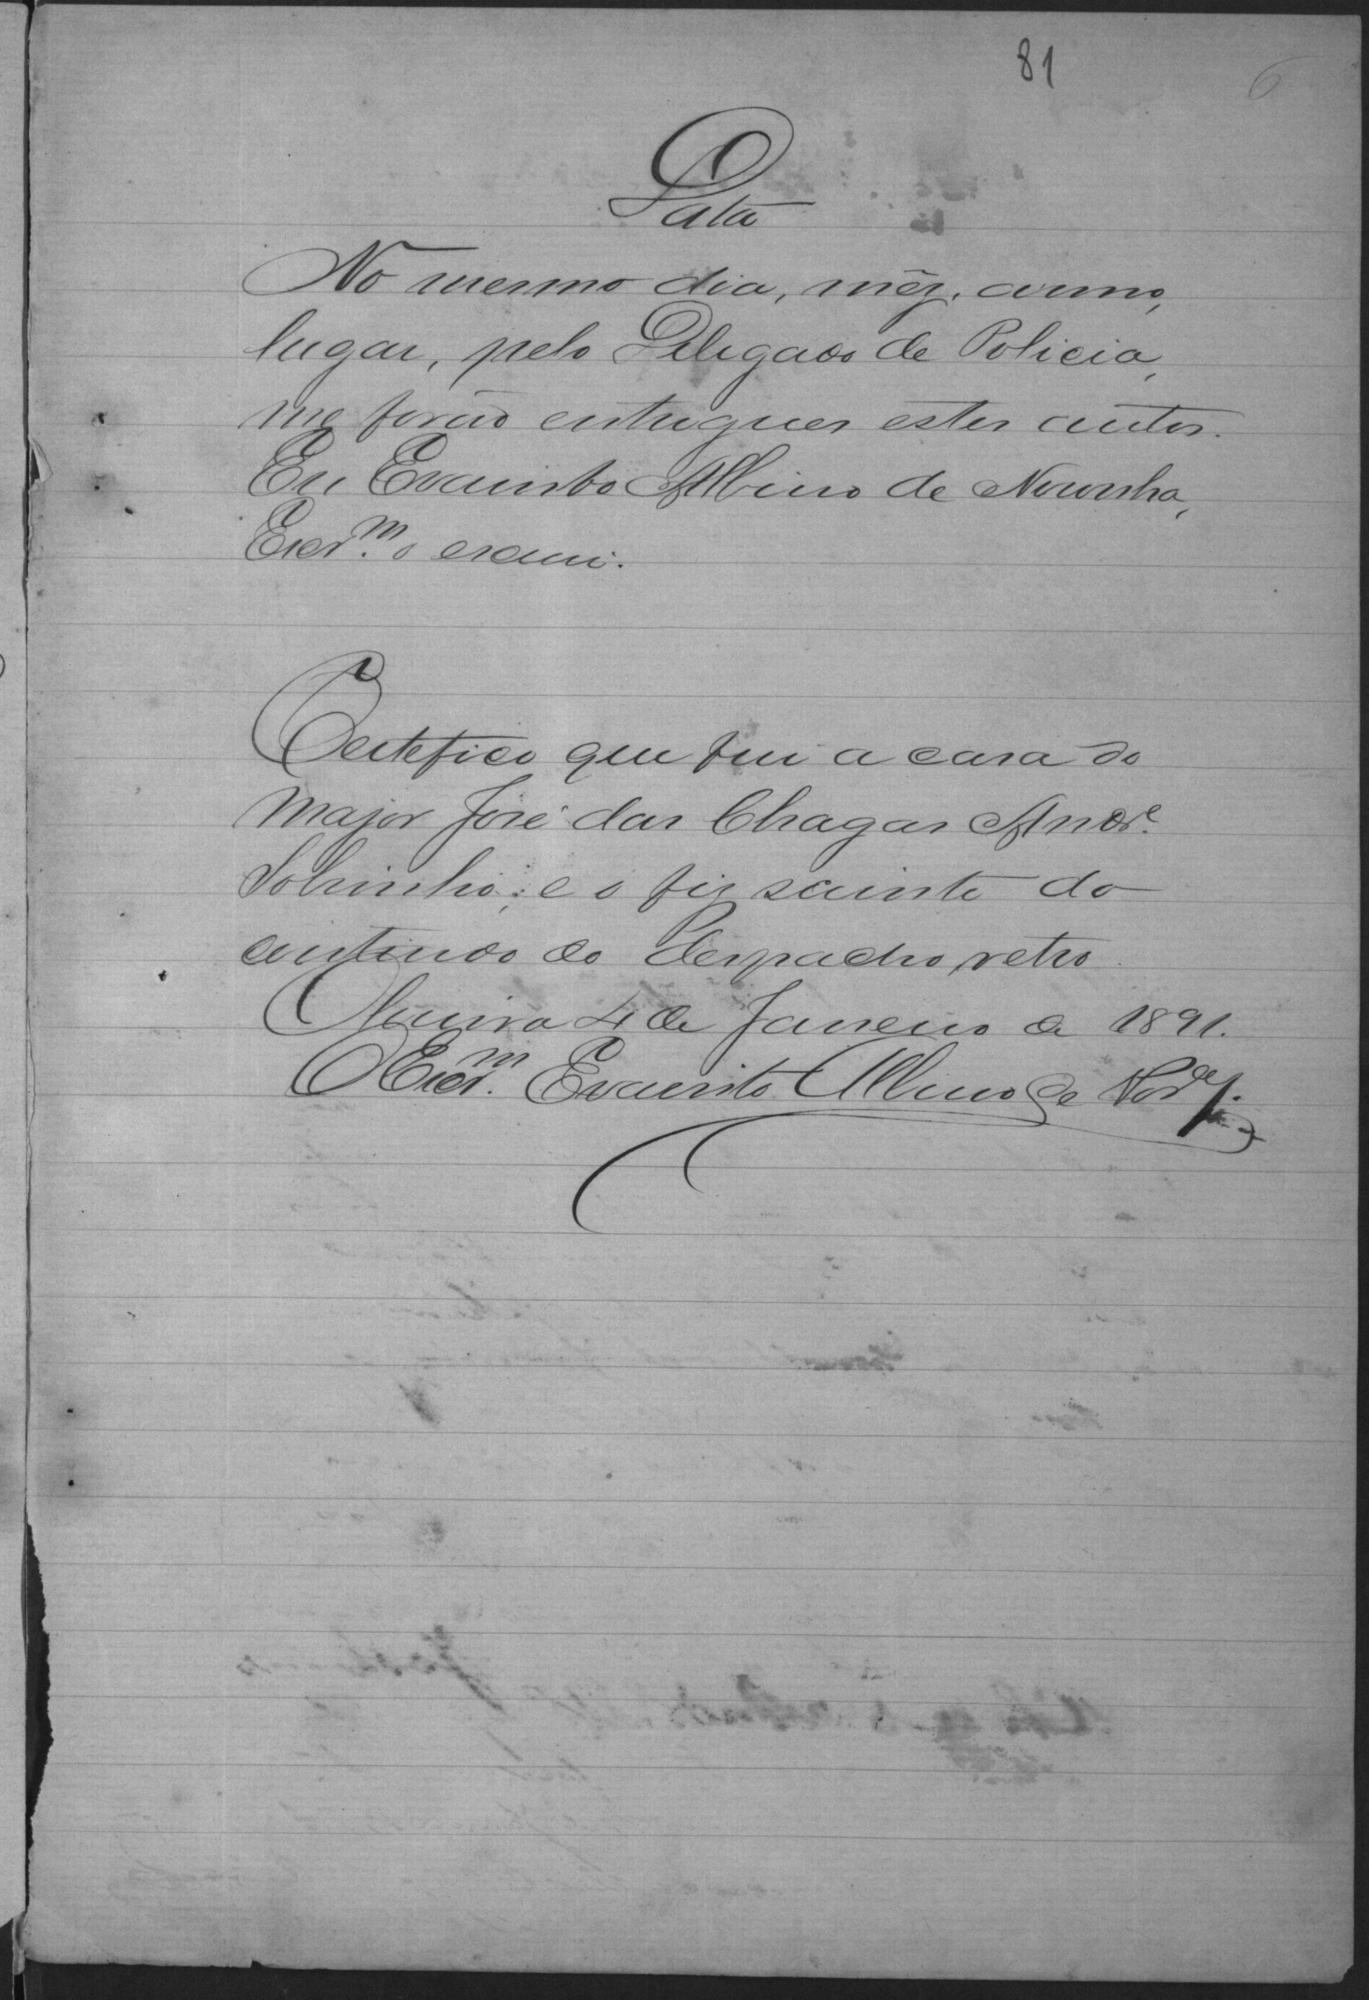 81
6
Data
No mesmo dia, mêz, anno,
lugar, pelo Delegado de Policia,
me forão entregues estes autos.
Eu Evaristo Albino de Noronha,
Escr.m o escrivi.
Certefico que fui a casa do
Major José das Chagas Andr.e
Sobrinho; e o fiz sciente do
contindo do Despacho, retro
4 de Janeiro de 1891.
O Escr.m Evaristo Albino de